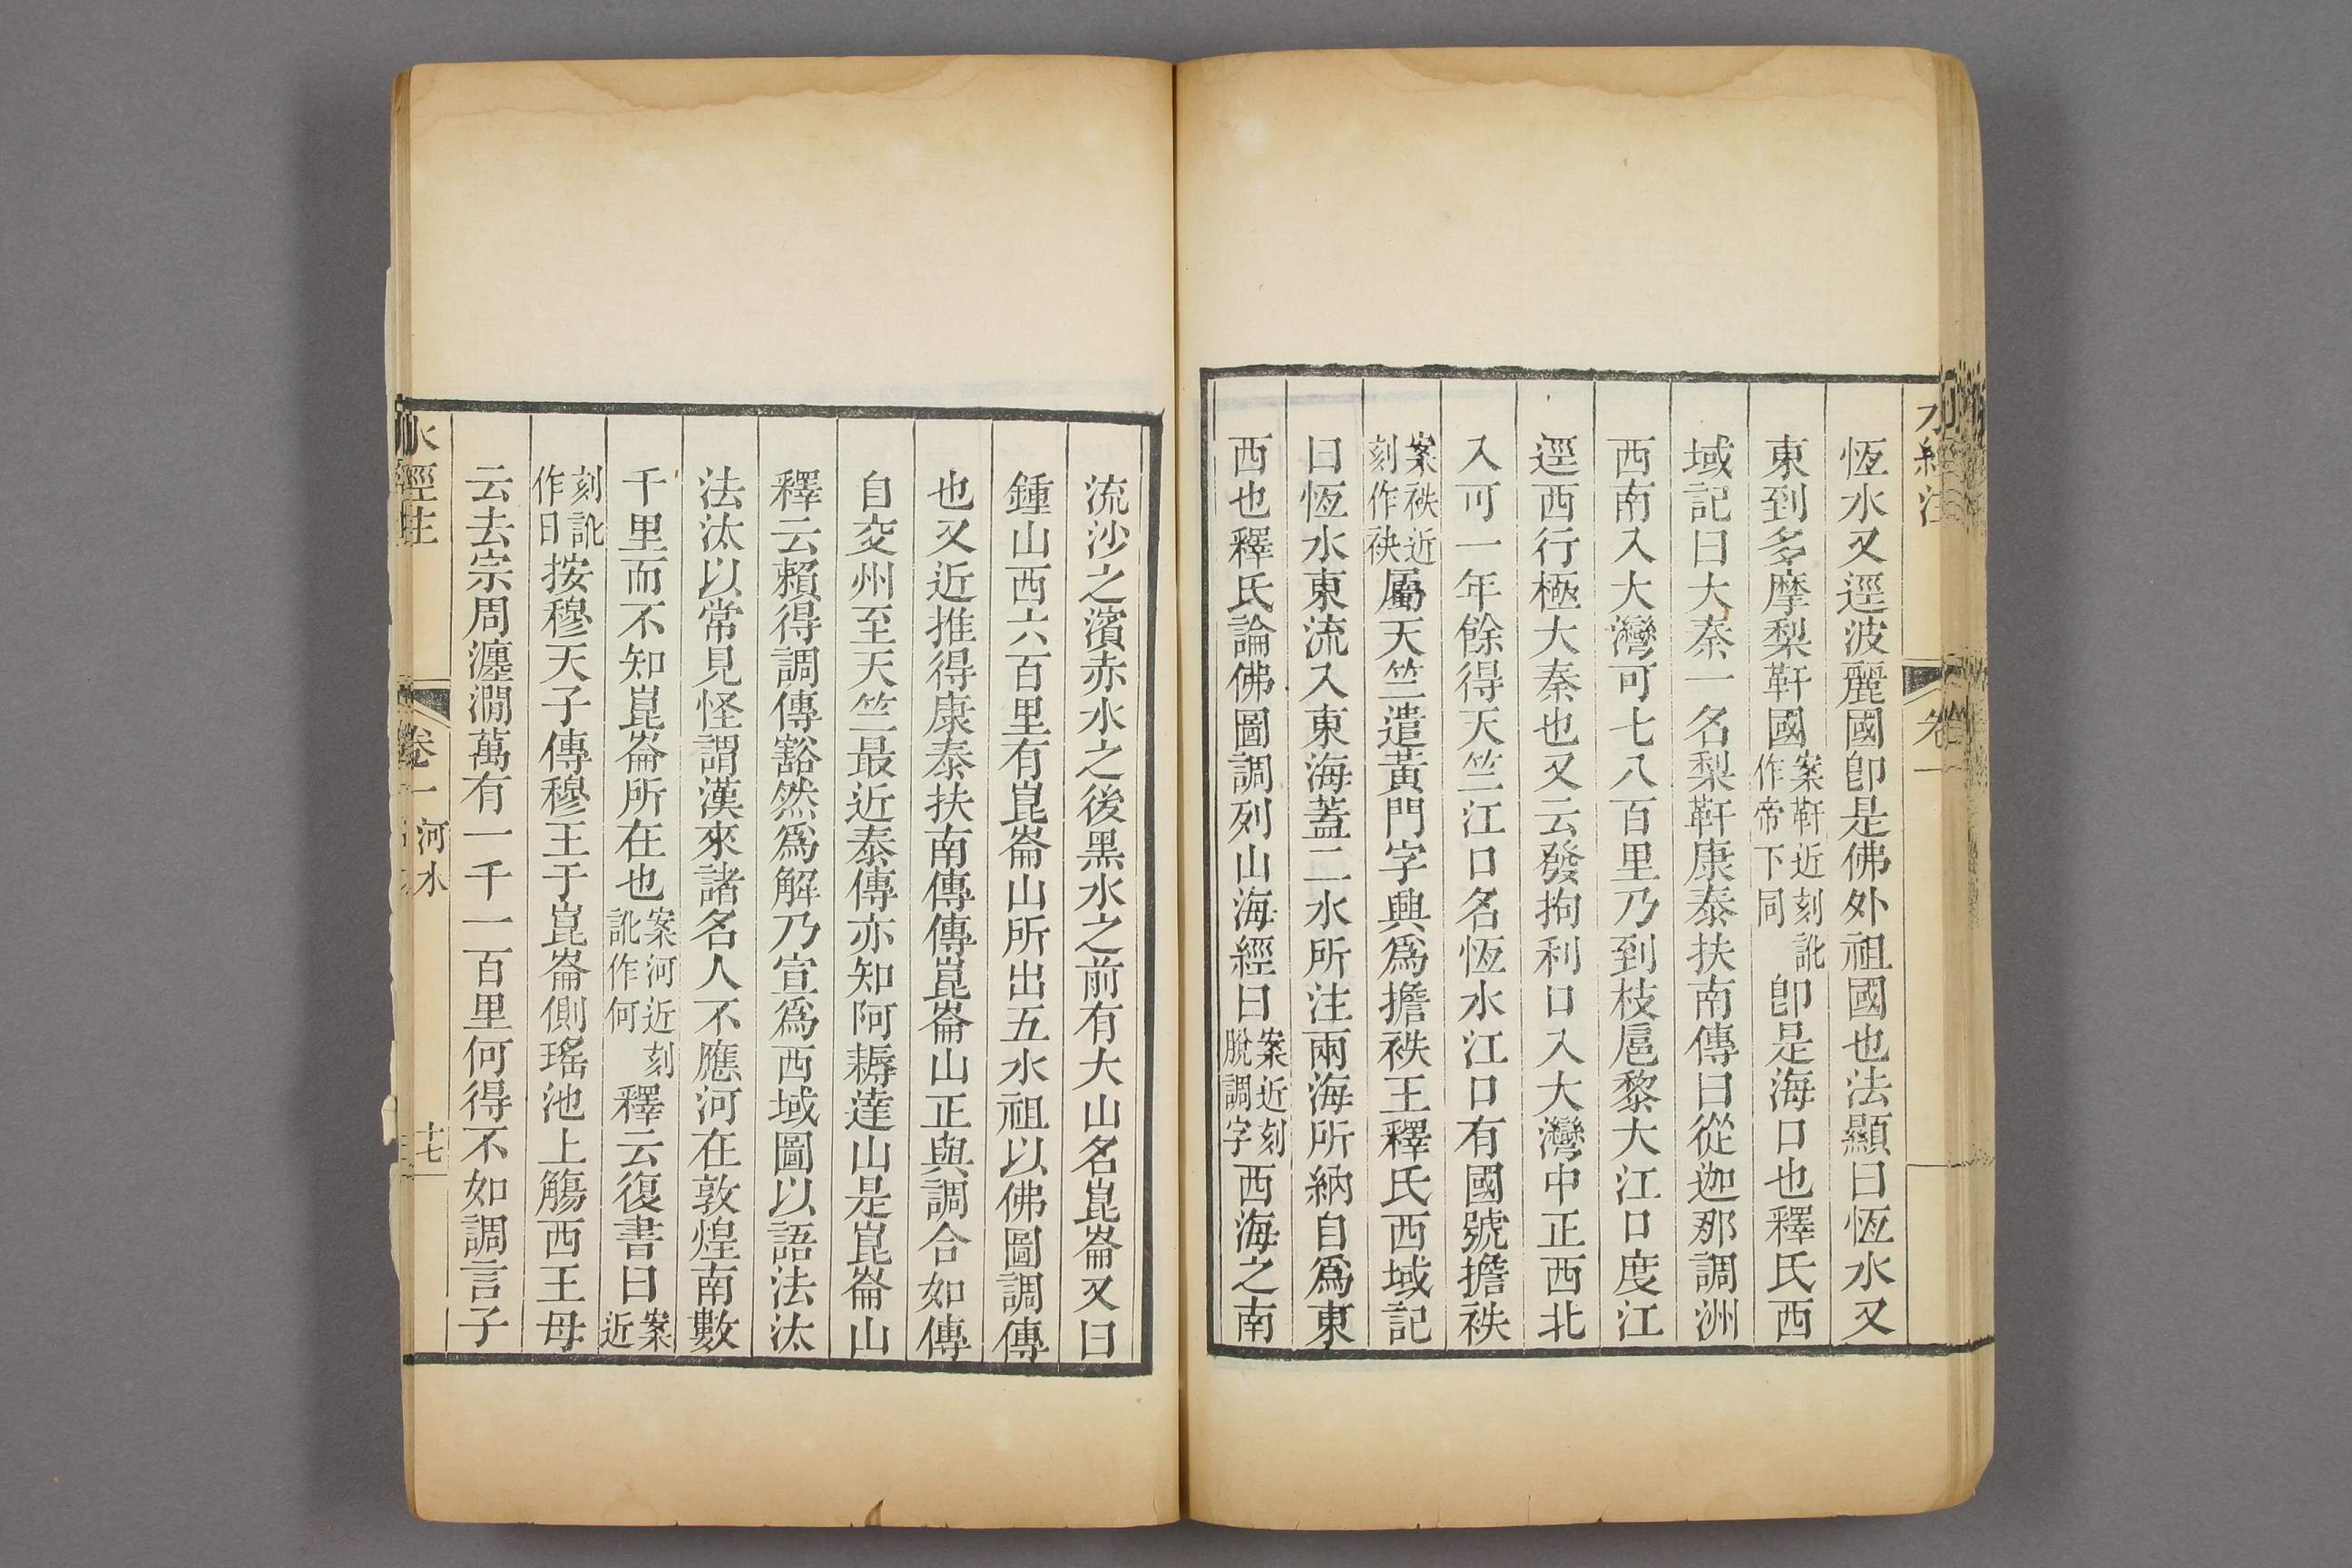 水經注
卷一
恆水又逕波麗國卽是佛外祖國也法顯曰恆水又
東到多摩梨靬國案靬近刻訛作帝下同卽是海口也釋氏西
域記曰大秦一名梨靬康泰扶南傳曰從迦那調洲
西南入大灣可七八百里乃到枝扈黎大江口度江
逕西行極大秦也又云發拘利口入大灣中正西北
入可一年餘得天竺江口名恆水江口有國號擔袟
案袟近刻作袂屬天竺遣黃門字興爲擔袟王釋氏西域記
曰恆水東流入東海蓋二水所注兩海所納自爲東
西也釋氏論佛圖調列山海經曰案近刻脫調字西海之南
流沙之濱赤水之後黑水之前有大山名崑崙又曰
鍾山西六百里有崑崙山所出五水祖以佛圖調傳
也又近推得康泰扶南傳傳崑崙山正與調合如傳
自交州至天竺最近泰傳亦知阿耨達山是崑崙山
釋云賴得調傳豁然爲解乃宣爲西域圖以語法汰
法汰以常見怪謂漢來諸名人不應河在敦煌南數
千里而不知崑崙所在也案河近刻訛作何釋云復書曰案近
刻訛作日按穆天子傳穆王于崑崙側瑤池上觴西王母
云去宗周瀍澗萬有一千一百里何得不如調言子
水經注
卷一
河水
十七